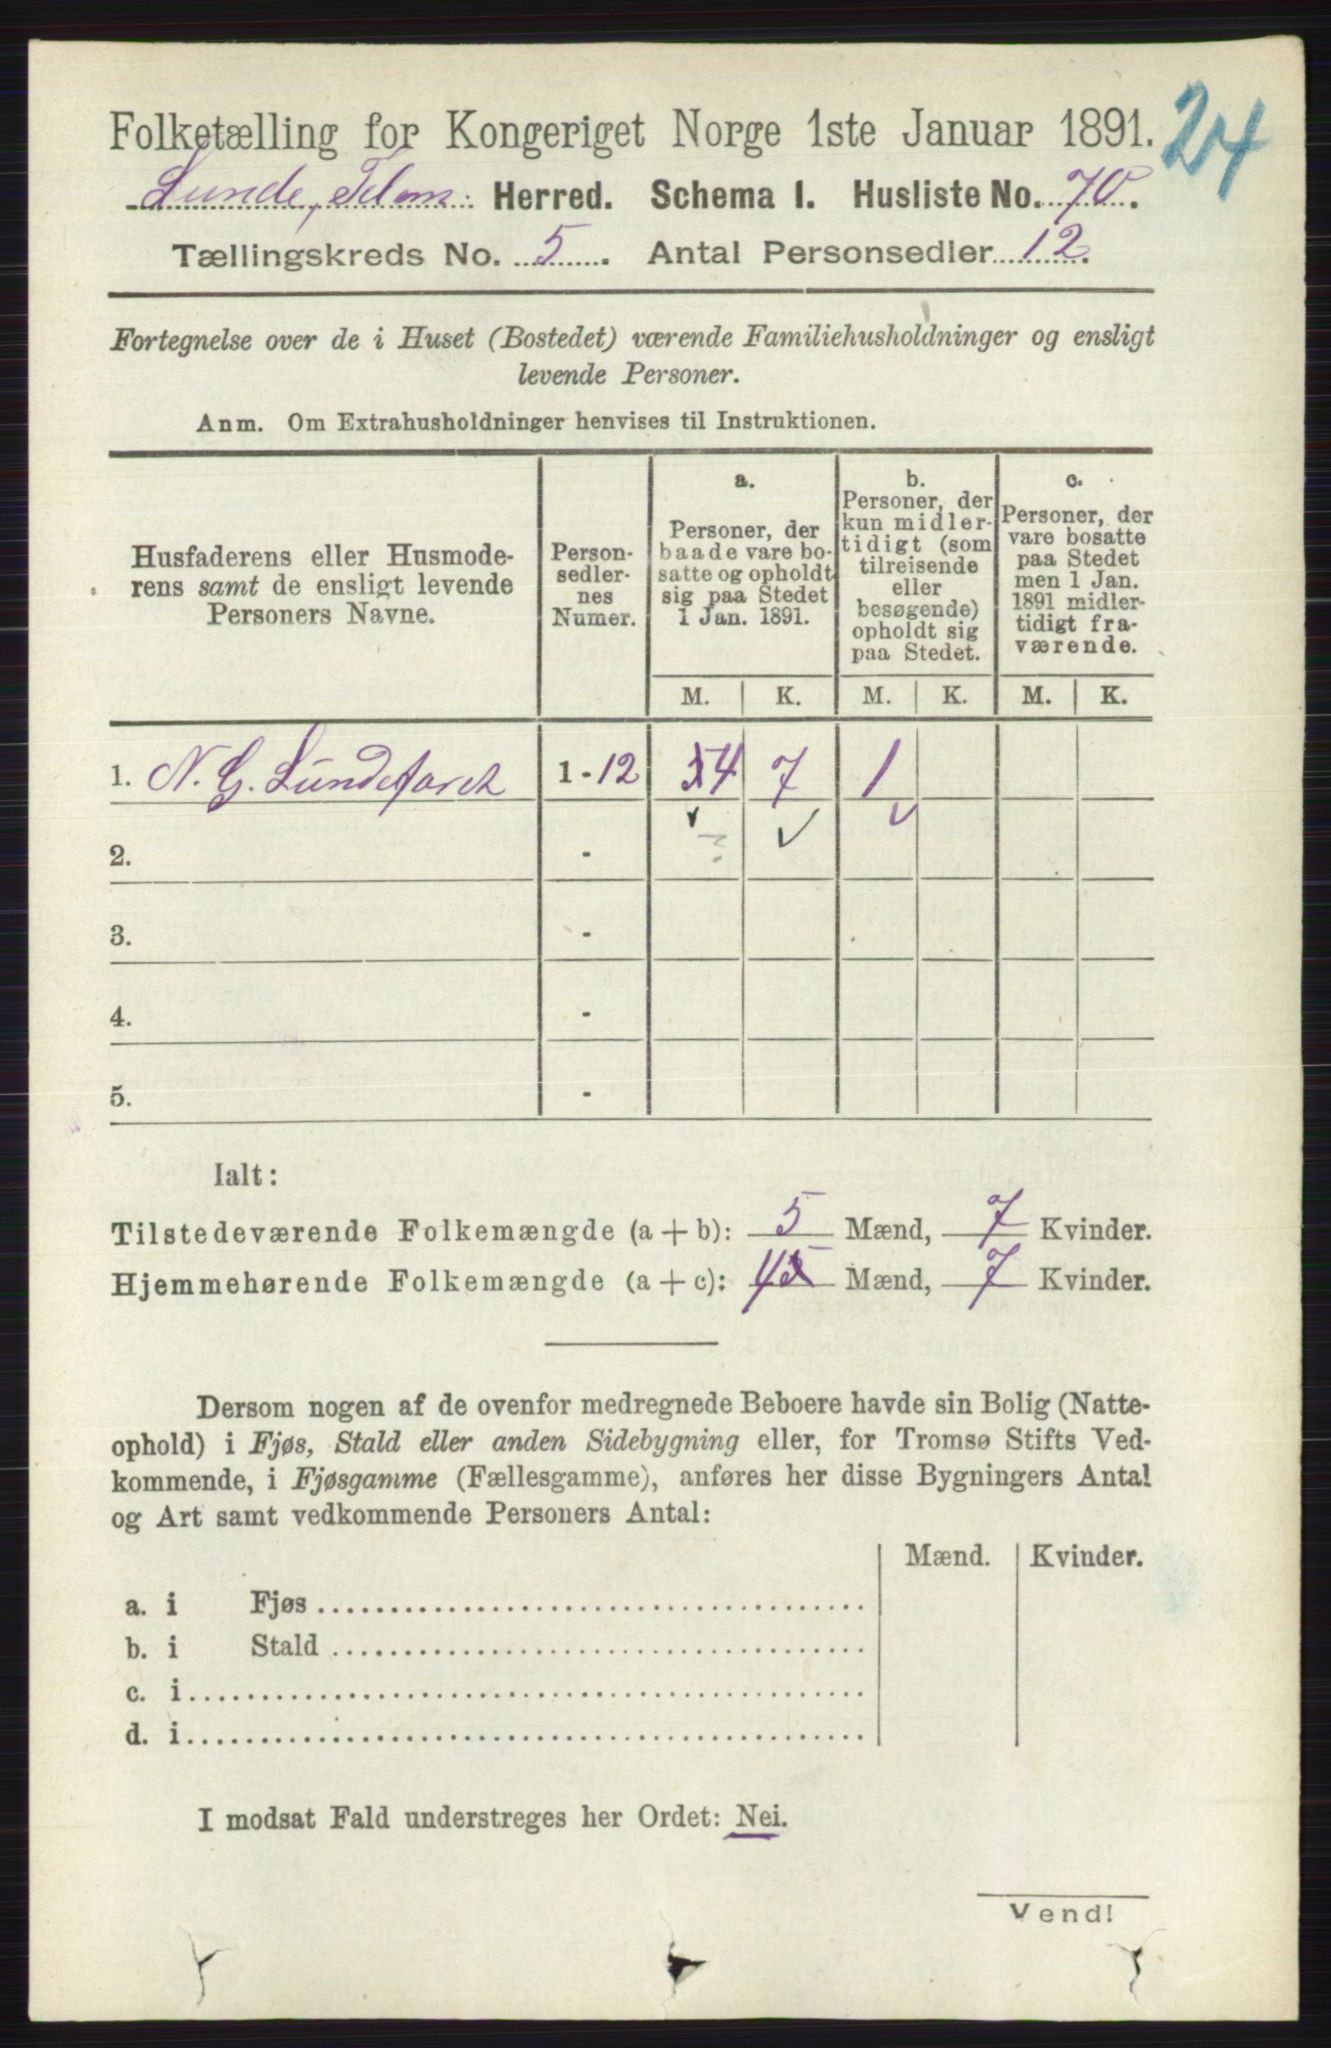 Folketælling for Kongeriget Norge 1ste Januar 1891.
24
Lunde, Telem: Herred. Schema I. Husliste No. 70.
Tællingskreds No. 5. Antal Personsedler 12.
Fortegnelse over de i Huset (Bostedet) værende Familiehusholdninger og ensligt
levende Personer.
Anm. Om Extrahusholdninger henvises til Instruktionen.
Husfaderens eller Husmode-
rens samt de ensligt levende
Personers Navne.
Person-
sedler-
nes
Numer.
a.
Personer, der
baade vare bo-
satte og opholdt
sig paa Stedet
1 Jan. 1891.
b.
Personer, der
kun midler-
tidigt (som
tilreisende
eller
besøgende)
opholdt sig
paa Stedet.
c.
Personer, der
vare bosatte
paa Stedet
men 1 Jan.
1891 midler-
tidigt fra-
værende.
M. K. M. K. M. K.
1. N. G. Lundefaret 1-12 4 7 1
2. -
3. -
4. -
5. -
Ialt:
Tilstedeværende Folkemængde (a + b): 5 Mænd, 7 Kvinder.
Hjemmehørende Folkemængde (a + c): 4 Mænd, 7 Kvinder.
Dersom nogen af de ovenfor medregnede Beboere havde sin Bolig (Natte-
ophold) i Fjøs, Stald eller anden Sidebygning eller, for Tromsø Stifts Ved-
kommende, i Fjøsgamme (Fællesgamme), anføres her disse Bygningers Antal
og Art samt vedkommende Personers Antal:
Mænd. Kvinder.
a. i Fjøs
b. i Stald
c. i
d. i
I modsat Fald understreges her Ordet: Nei.
Vend!